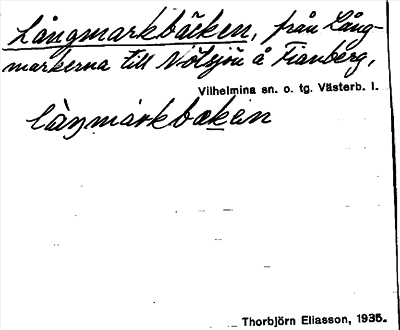 Långmarkbäcken, från Lång-
markerna till Nölsjön å Fianberg,
Vilhelmina sn. o. tg. Västerb. l.
làŋmárkbækèn
Thorbjörn Eliasson, 1935.